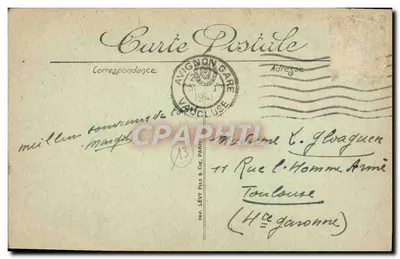 Carte Postale
Correspondance
Adresse
AVIGNON GARE
VAUCLUSE
meilleur souvenir de
CPAPHIL
Madame L. Gloaguen
11 Rue l'Homme Armé
Toulouse
(Hte garonne)
13
IMP. LÉVY FILS & Cie, PARIS